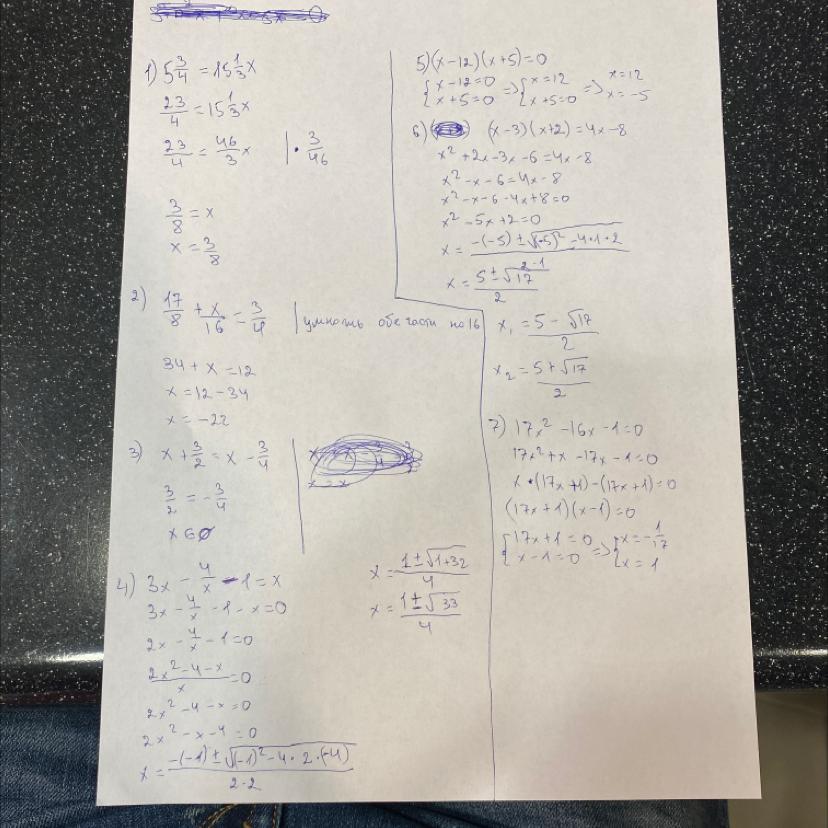 1) 5 3/4 = 15 1/3 x
23/4 = 15 1/3 x
23/4 = 46/3 x | · 3/46
3/8 = x
x = 3/8
2) 17/8 + x/16 = 3/4 | умножь обе части на 16
34 + x = 12
x = 12 - 34
x = -22
3) x + 3/2 = x - 3/4
3/2 = - 3/4
x ∈ ∅
4) 3x - 4/x - 1 = x
3x - 4/x - 1 - x = 0
2x - 4/x - 1 = 0
(2x² - 4 - x)/x = 0
2x² - 4 - x = 0
2x² - x - 4 = 0
x = (-(-1) ± √((-1)² - 4 · 2 · (-4)))/(2 · 2)
x = (1 ± √(1 + 32))/4
x = (1 ± √33)/4
5) (x - 12)(x + 5) = 0
{ x - 12 = 0 => { x = 12 => x = 12
x + 5 = 0 x + 5 = 0 x = -5
6) (x - 3)(x + 2) = 4x - 8
x² + 2x - 3x - 6 = 4x - 8
x² - x - 6 = 4x - 8
x² - x - 6 - 4x + 8 = 0
x² - 5x + 2 = 0
x = (-(-5) ± √((-5)² - 4 · 1 · 2))/(2 · 1)
x = (5 ± √17)/2
x₁ = (5 - √17)/2
x₂ = (5 + √17)/2
7) 17x² - 16x - 1 = 0
17x² + x - 17x - 1 = 0
x · (17x + 1) - (17x + 1) = 0
(17x + 1)(x - 1) = 0
{ 17x + 1 = 0 => { x = - 1/17
x - 1 = 0 x = 1